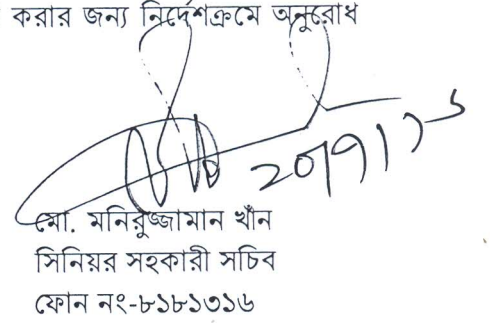 করার জন্য নির্দেশক্রমে অনুরোধ
মো. মনিরুজ্জামান খাঁন
সিনিয়র সহকারী সচিব
ফোন নং-৮১৮১৩১৬